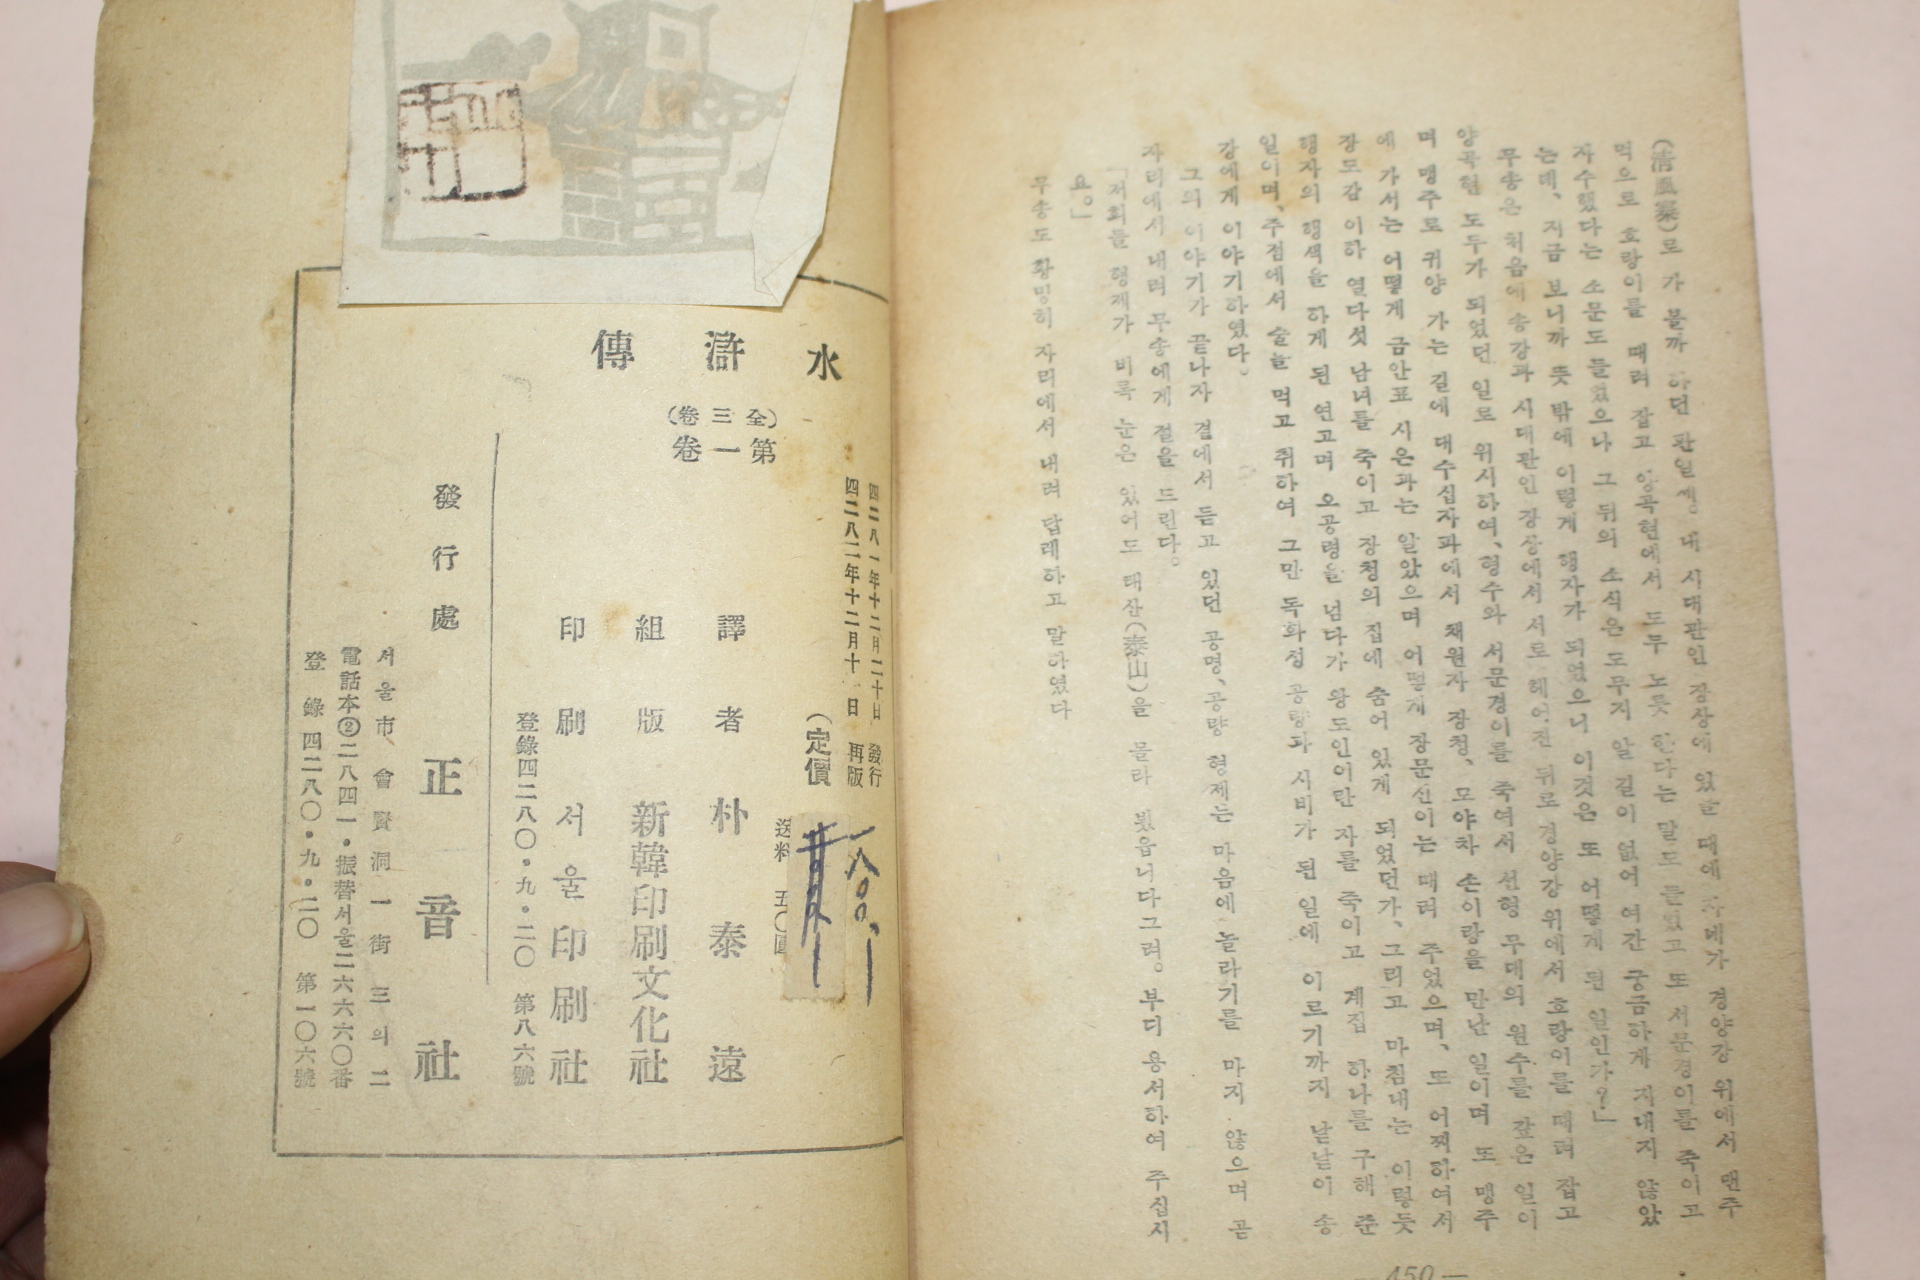 (清風寨)로 가 볼까 하던 판일세. 내 시대관인 장상에 있을 때에 자네가 경양강 위에서 맨주
먹으로 호랑이를 때려 잡고 양곡현에서 도두 노릇 한다는 말도 들었고 또 서문경이를 죽이고
자수했다는 소문도 들었으나 그 뒤의 소식은 도무지 알 길이 없어 여간 궁금하게 지내지 않았
는데、지금 보니까 뜻 밖에 이렇게 행자가 되었으니 이것은 또 어떻게 된 일인가?」
무송은 처음에 송강과 시대관인 장상에서 서로 헤어진 뒤로 경양강 위에서 호랑이를 때려 잡고
양곡현 도두가 되었던 일로 위시하여、형수와 서문경이를 죽여서 선형 무대의 원수를 갚은 일이
며 맹주로 귀양 가는 길에 대수십자파에서 채원자 장청、모야차 손이랑을 만난 일이며 또 맹주
에 가서는 어떻게 금안표 시은과는 알았으며 어떻게 장문신이는 때려 주었으며、또 어찌하여서
장도감 이하 열다섯 남녀를 죽이고 장청의 집에 숨어 있게 되었던가、그리고 마침내는 이렇듯
행자의 행색을 하게 된 연고며 오공령을 넘다가 왕도인이란 자를 죽이고 계집 하나를 구해 준
일이며、주점에서 술을 먹고 취하여 그만 독화성 공량과 시비가 된 일에 이르기까지 낱낱이 송
강에게 이야기하였다。
그의 이야기가 끝나자 곁에서 듣고 있던 공명、공량 형제는 마음에 놀라기를 마지 않으며 곧
자리에서 내려 무송에게 절을 드린다。
「저희들 형제가 비록 눈은 있어도 태산(泰山)을 몰라 뵜읍니다그려。부디 용서하여 주십시
요。」
무송도 황망히 자리에서 내려 답례하고 말하였다
—450—
水滸傳
(全三卷)
第一卷
四二八一年十二月二十日 發行
四二八二年十二月十日 再版
(定價
一八〇〇.
送料 五〇圓
譯者 朴泰遠
組版 新韓印刷文化社
印刷 서울印刷社
登錄四二八〇・九・二〇 第八六號
發行處 正音社
서울市會賢洞一街三의二
電話本②二八四一・振替서울二六六六〇番
登錄 四二八〇・九・二〇 第一〇六號